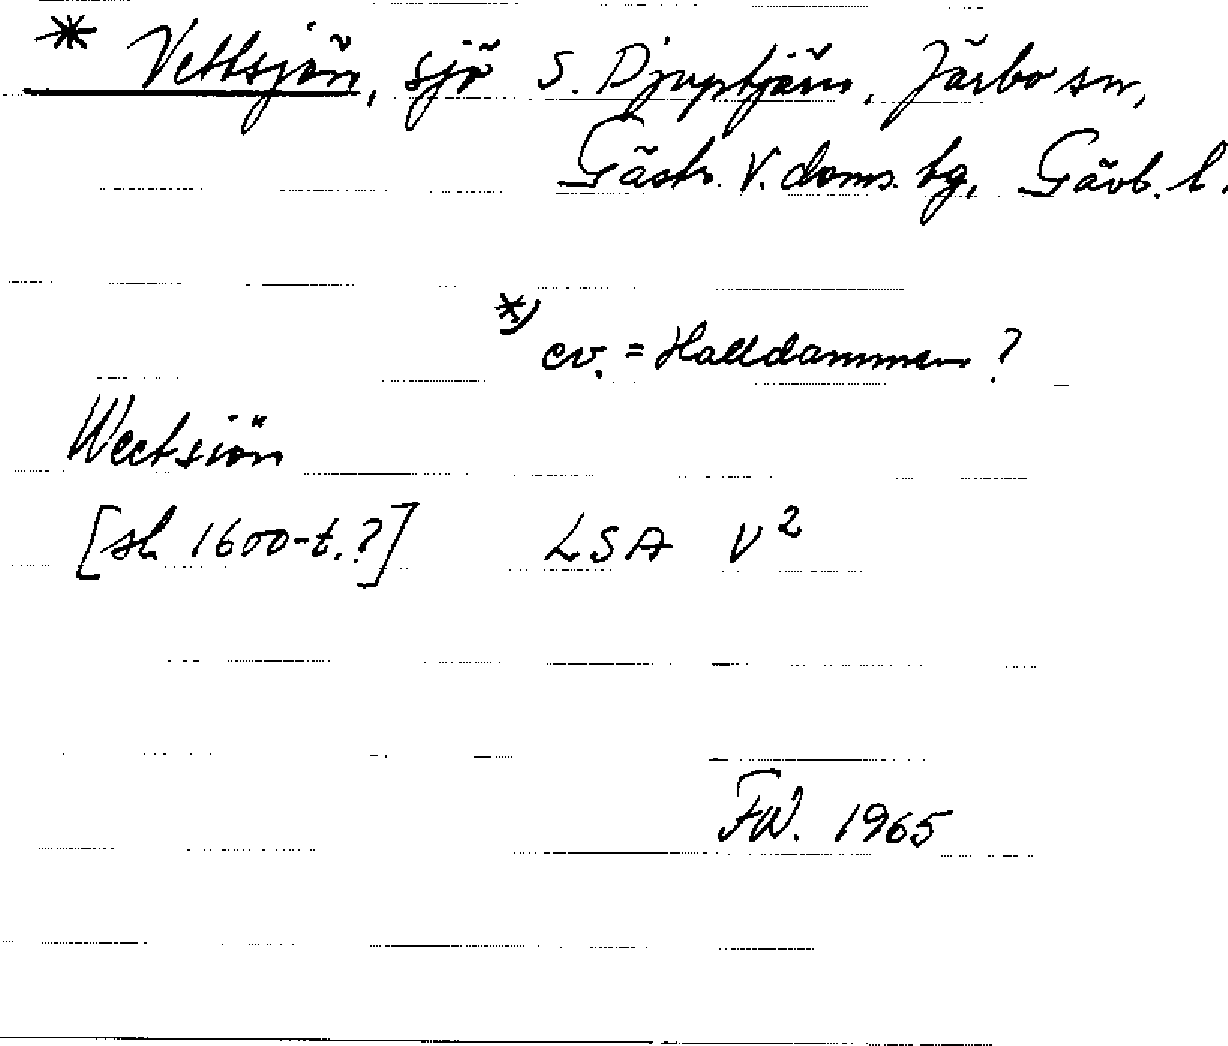 * Vettsjön, sjö S. Djuptjärn, Järbo sn,
Gästr. V. doms. tg, Gävb. l.
*) ev. = Halldammen ?
Wectsiön
[sl. 1600-t.?] LSA V²
FW. 1965